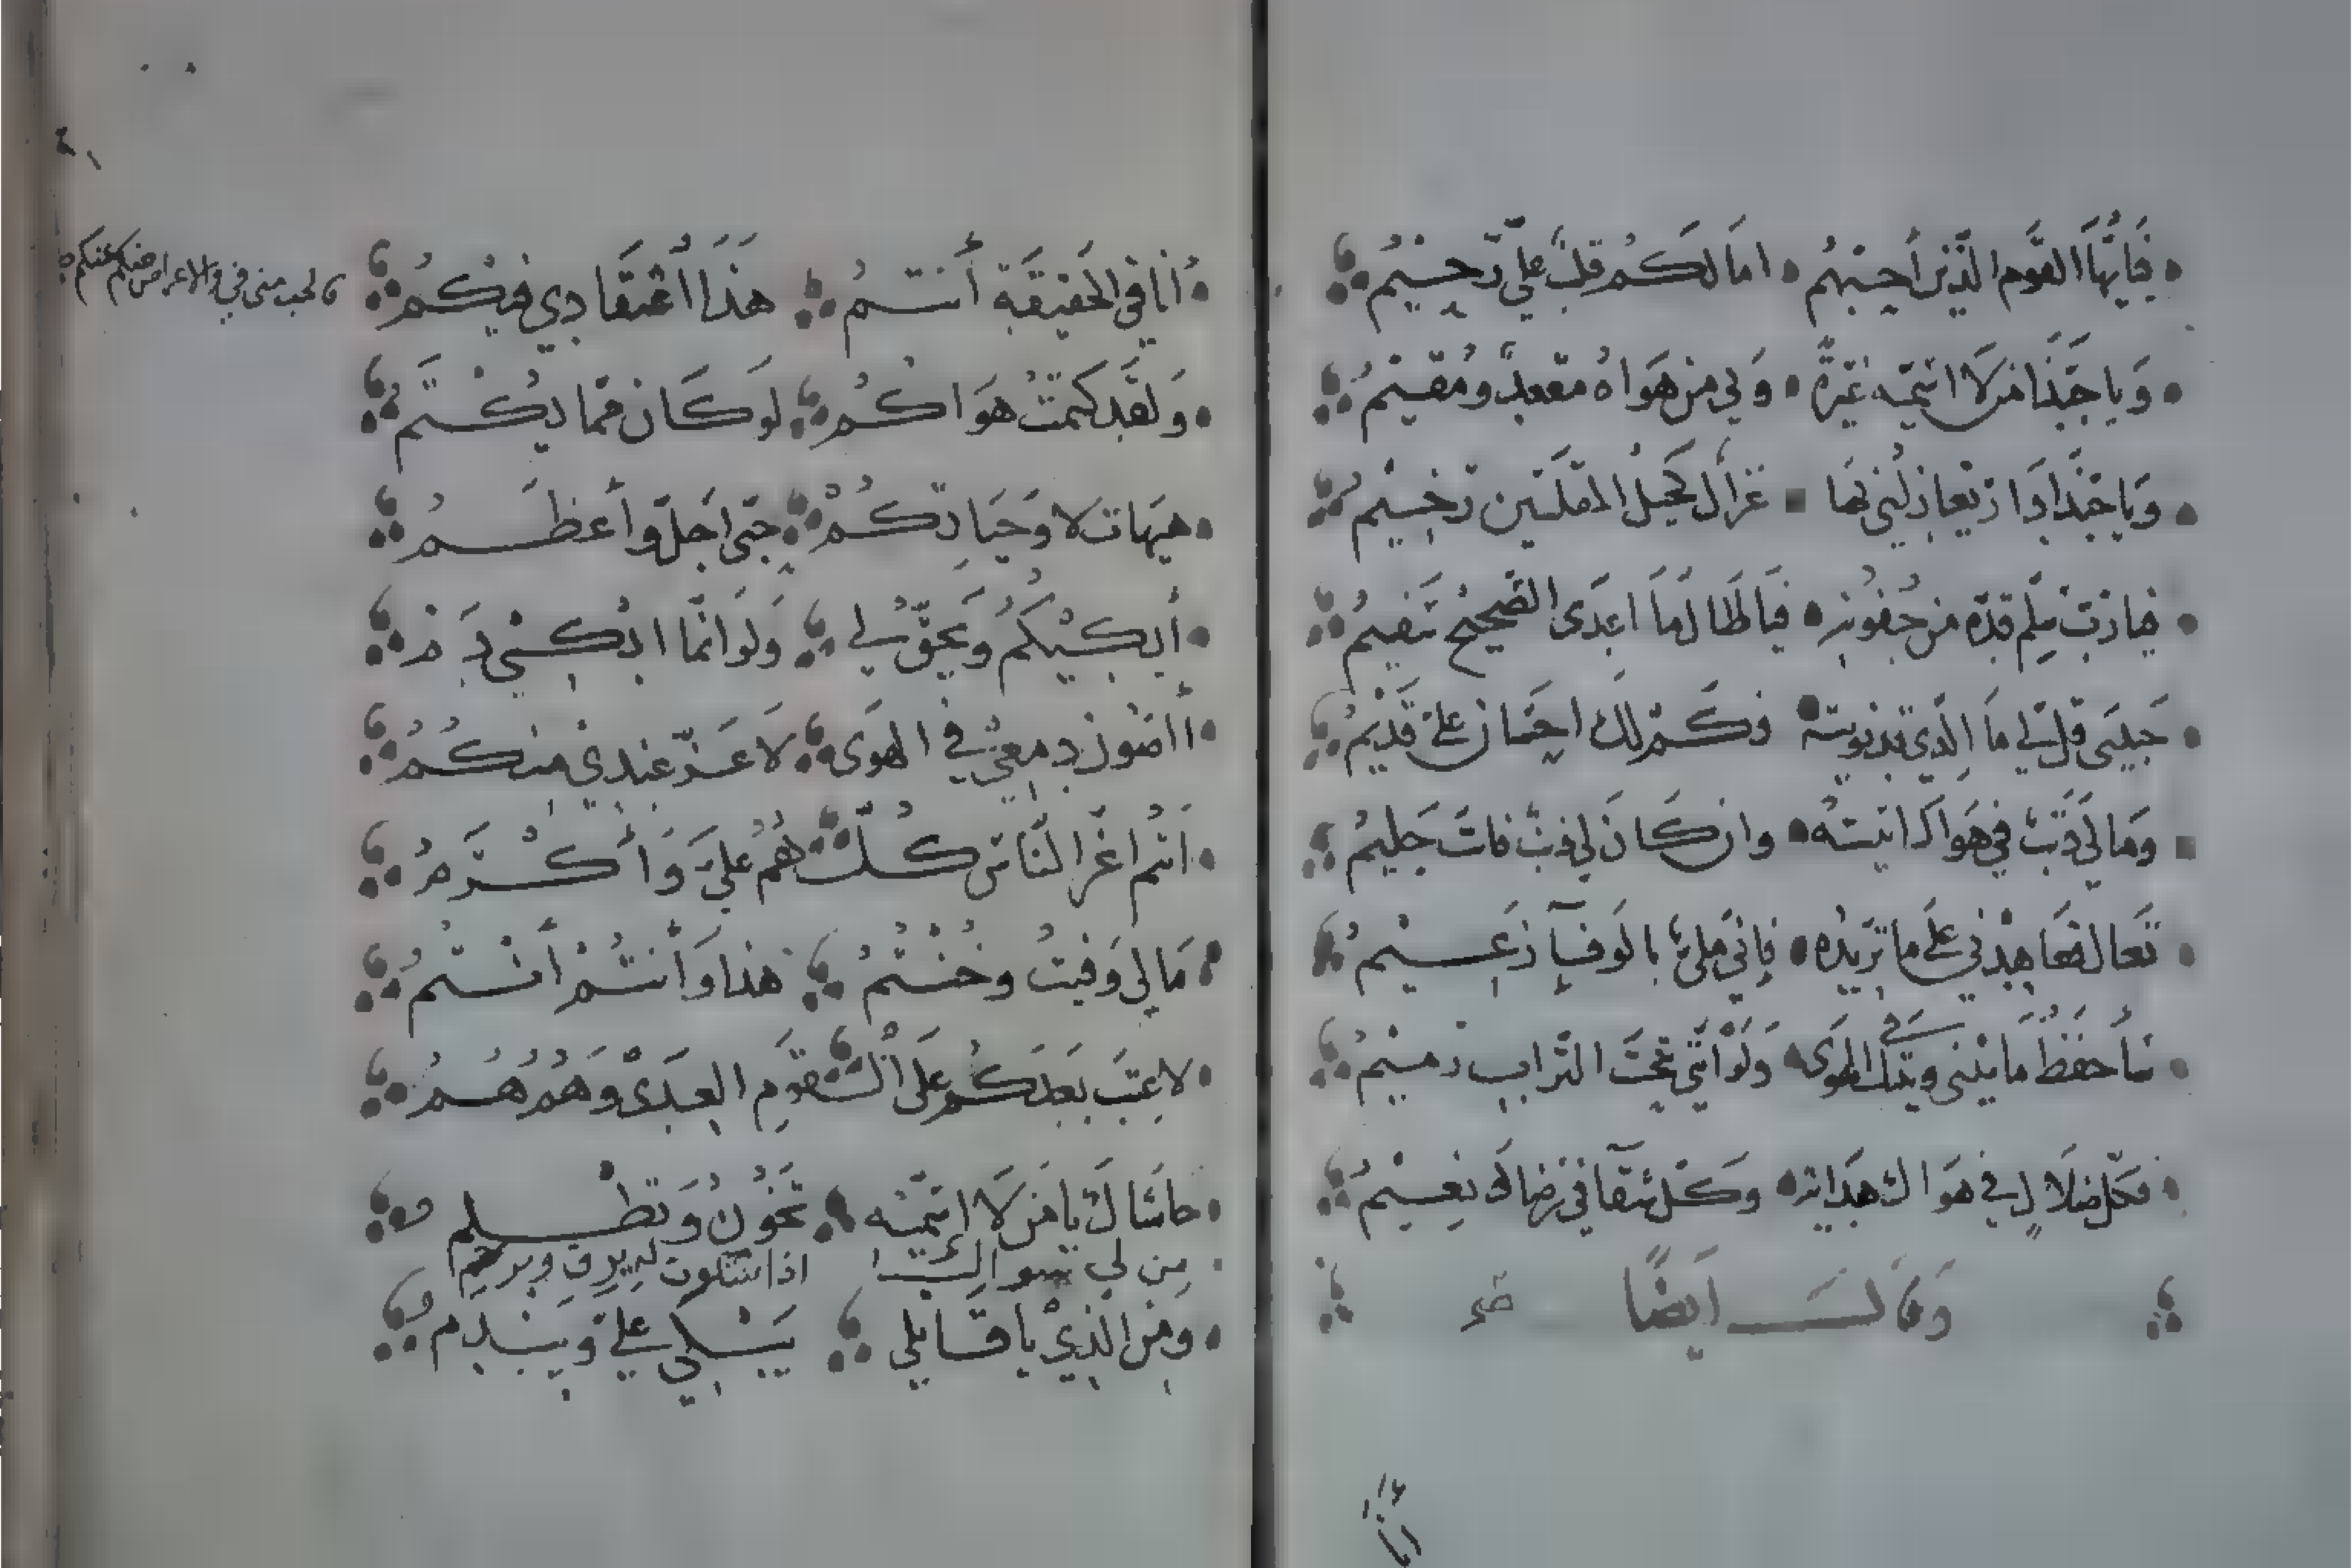 فَيَا أَيُّهَا القَوْم الَّذِين أُحِبُّهُم اَمَا لَكُم قَلْبٌ عَلَيَّ رَحِيمُ
وَيَا حَبَّذَا مَن لَا اُسَمِّيه غَيْرَةً وَلِي مِن هَوَاهُ مُقْعِدٌ وَمُقِيمُ
وَيَا حَبَّذَا دَار يُغَازِلُنِي بِهَا غَزَال كَحِيلُ المُقْلَتَين رَخِيمُ
حَبِيبَي قُل لِي مَا الَّذِي قَد نَوَيتَه وَكَم لَكَ اِحسَان عَلَيَّ قَدِيمُ
وَمَا لِي ذَنْبٌ فِي هَوَاكَ اَتيتُهُ وَان كَانَ لِي ذنب فَانتَ حَلِيمُ
تَعَالَ فَعَاهِدْنِي عَلَى مَا تُرِيدُه فَإِنِّي مَلِيٌّ بِالوَفَآءِ زَعِيمُ
سَأَحفَظُ مَا بَيْنِي وَبَيْنَك فِي الهَوَى وَلَوْ اَنَّنِي تَحْتَ التُّرَابِ رَمِيمُ
فَكُلّ ضَلَالٍ فِي هَوَاكَ هِدَايَة وَكُلّ شَقَآءٍ فِي رِضَاكَ نَعِيمُ
وَقَالَ اَيضًا
أنَا فِي الحَقِيقَةِ أَنتُمُ هَذَا أعْتِقَادِي فِيكُمُ
وَلَقَد كَتَمتُ هَوَاكُمُ لَو كَانَ مِمَّا يُكْتَمُ
هَيهَات لا وَحَيَاتِكُمْ حُبّي اَجَلّ وَأَعظَمُ
أَبكِيكُمُ وَيَحِقُّ لِي وَلَو انَّمَا ابكِي دَمُ
أأَصُونُ دَمعِيْ فِي الهَوَى لَا عَزَّ عِندِي مِنكُمُ
اَنتُم اَعَزّ النَّاسِ كُلِّهُمُ عَلَيَّ وَأَكْرَمُ
مَا لِي وَفَيتُ وَخُنْتُمُ هَذَا وَأَنتُمْ أَنْتُمُ
لا عتبَ بَعدَكُم عَلَى القَوْمِ العِدَى وَهُم هُمُ
حَاشَاكَ يَا مَن لَا اُسَمِّيه تَخُون وَتَظْلِم
مِن لي سواك اذا شكوت له يرق ويرحم
وَمَن الَّذِي يَا قَاتِلِي يَبْكِي عَلَيَّ وَيَنْدَم